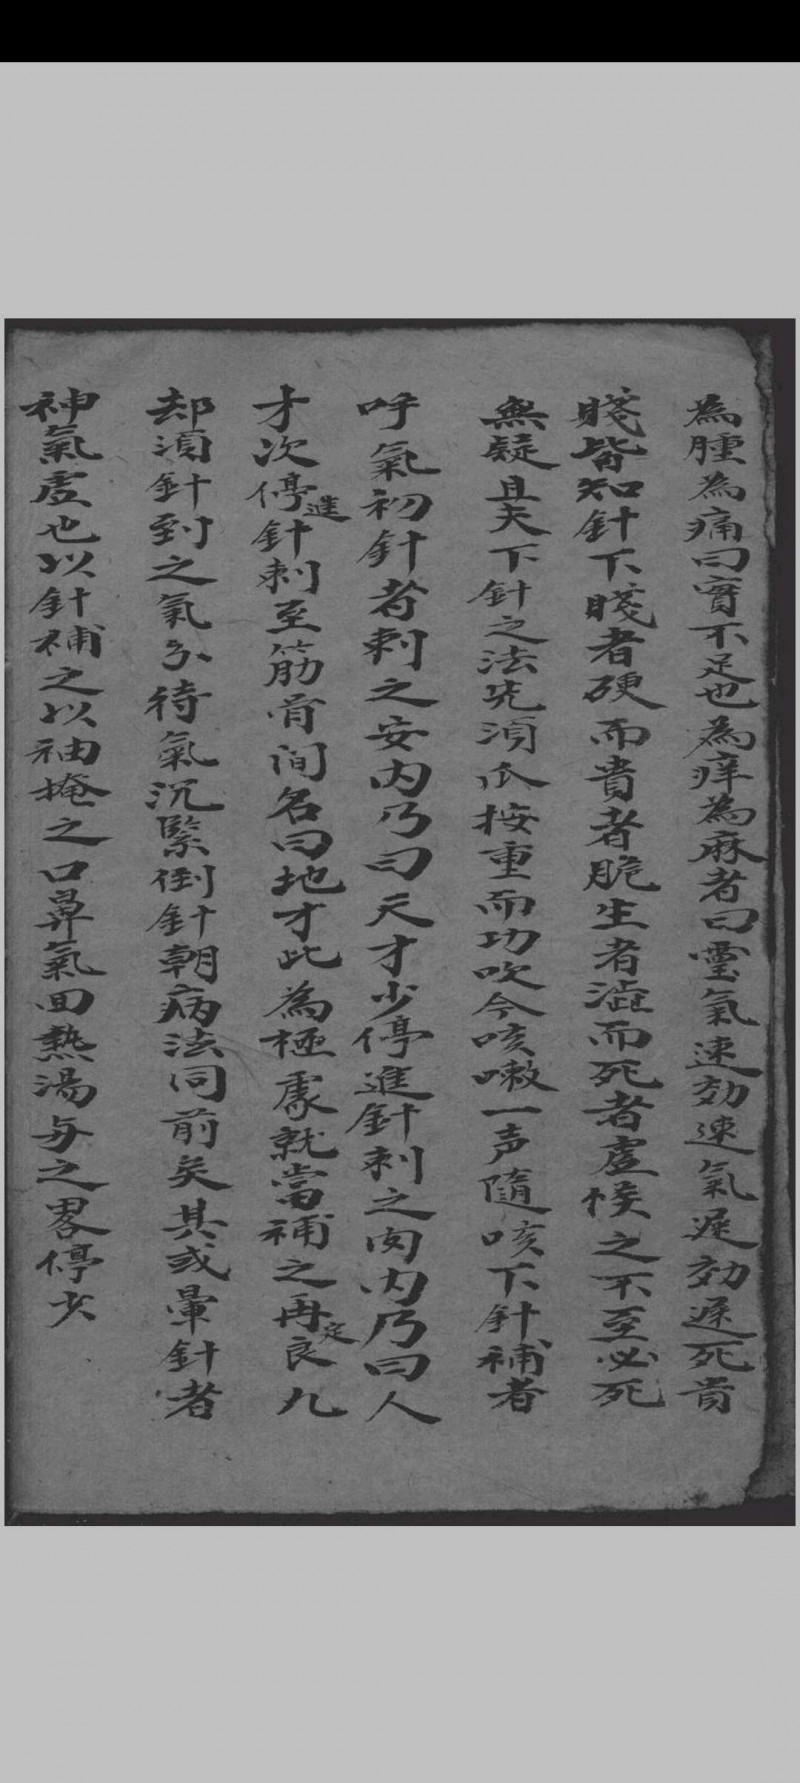 為腫為痛曰實不足也為痒為麻者曰虛氣速効速氣遲効遲死貴
賤皆知針下賤者硬而貴者脆生者澁而死者虛候之不至必死
無疑且夫下針之法先須爪按重而功吹令咳嗽一声隨咳下針補者
呼氣初針者刺之安內乃曰天才少停進針刺之肉內乃曰人
才次停進針刺至筋骨间名曰地才此為極處就當補之再定良九
却須針到之氣分待氣沉緊倒針朝病法同前矣其或暈針者
神氣虛也以針補之以袖掩之口鼻氣回熱湯与之畧停少